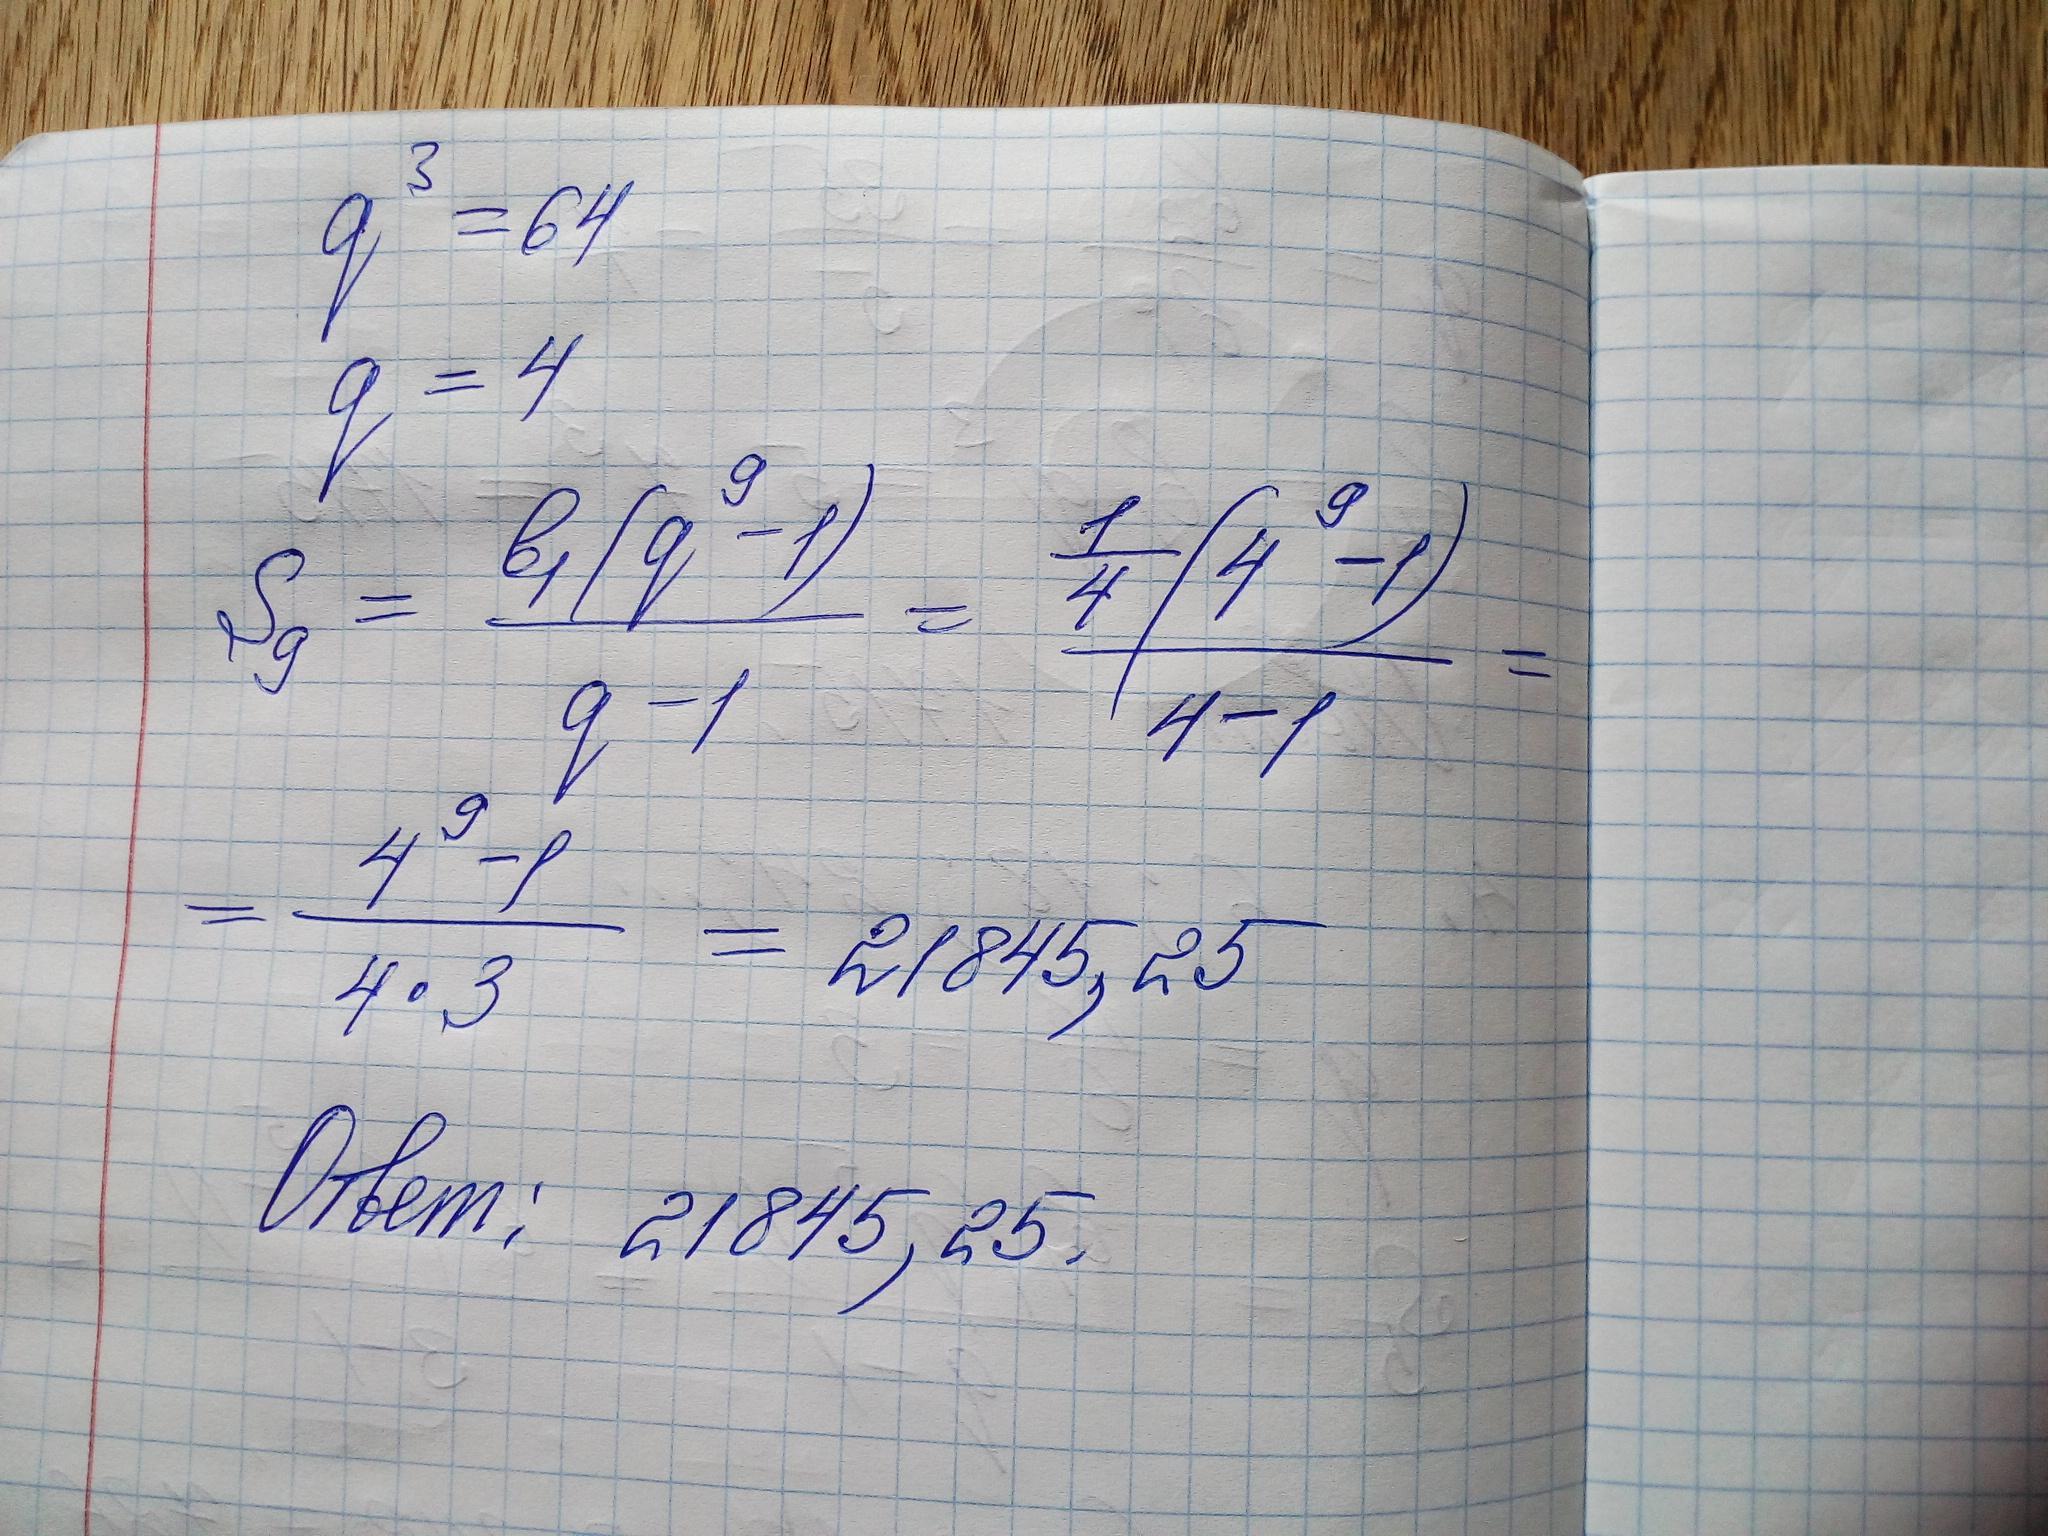 q³ = 64
q = 4
S₉ = b₁(q⁹ - 1) / (q - 1) = 1/4 (4⁹ - 1) / (4 - 1) =
= (4⁹ - 1) / (4 · 3) = 21845,25
Ответ: 21845,25.